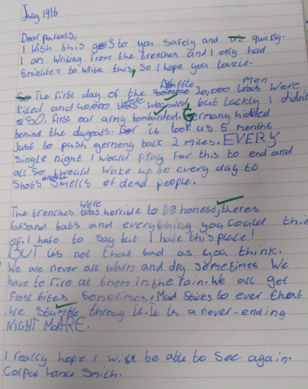 July 1916
Dear parents,
I wish this gets to you safely and quickly.
I am writing from the trenches and I only had
5 minutes to write this, So I hope you
So The first day of the Battle 20,000 men were
killed and 40,000 were wounded but luckly I didn't
first our army bombarded. Germany hidded
behind the dugouts. It took us 5 months
Just to push germany back 2 miles. EVERY
single night I would pray for this to end and
all so would wake up every day to
Shots and smells of dead people.
The trenches were horrible to be honest, theres
rats and bats and everything you could think
of. I hate to say but I hate this place!
BUT its not that bad as you think.
We are never all warm and dry sometimes we
have to fire at them in the rain. We all get
frost bites sometimes. Mud sticks to ever there.
We through it. It is a never-ending
NIGHT MARE.
I really hope I will be able to see again.
Corpor Lance Smith.